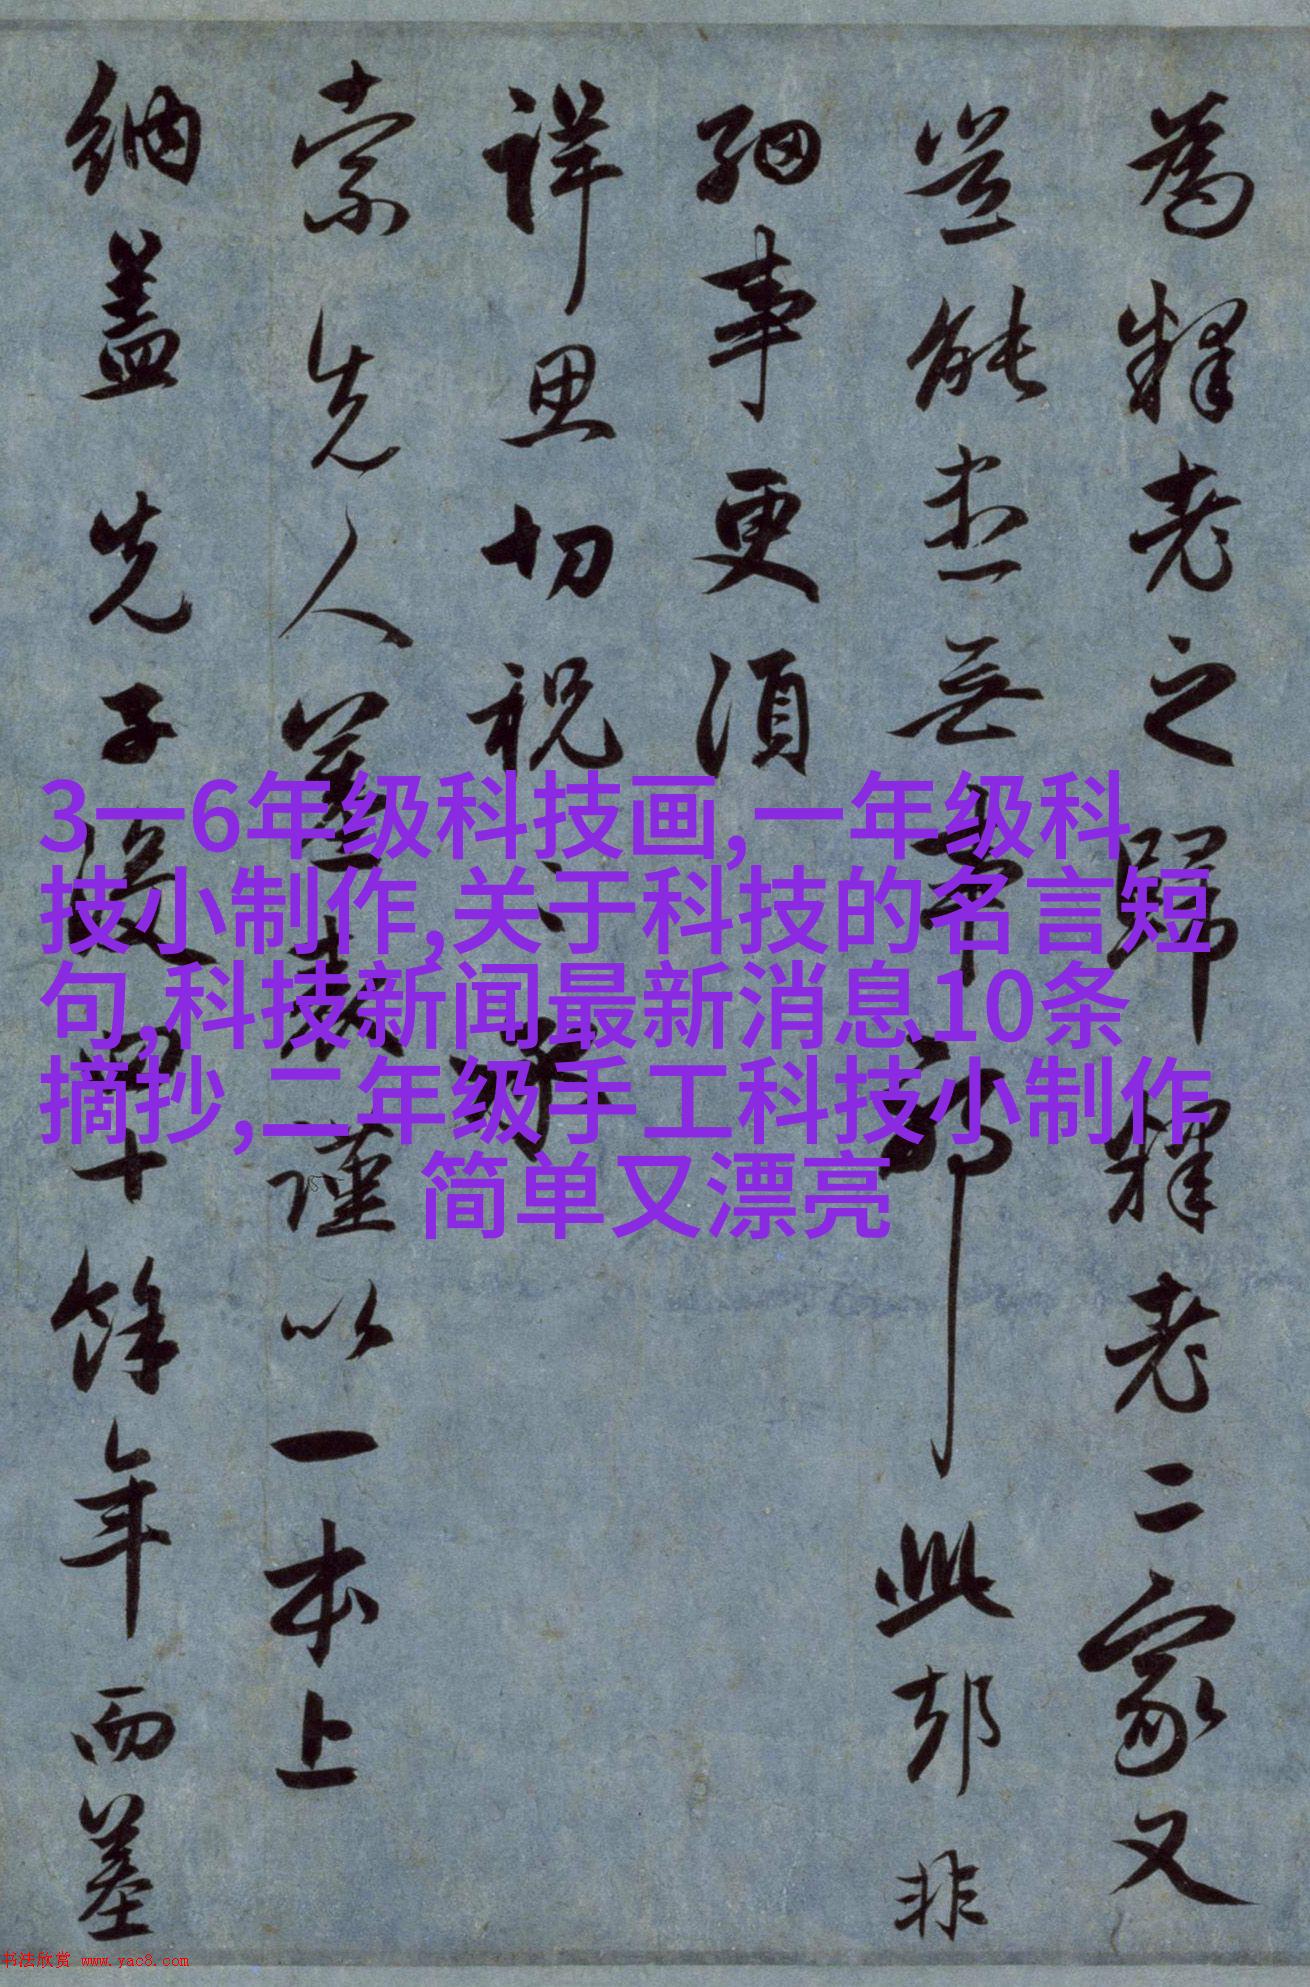 為釋老之歸釋老二家又
豈能無耶此却非
細事更須
詳思切祝
索先人墓表謹以一本上
納蓋先子沒四十餘年而墓
3一6年级科技画,一年级科
技小制作,关于科技的名言短
句,科技新闻最新消息10条
摘抄,二年级手工科技小制作
简单又漂亮
书法欣赏 www.yac8.com